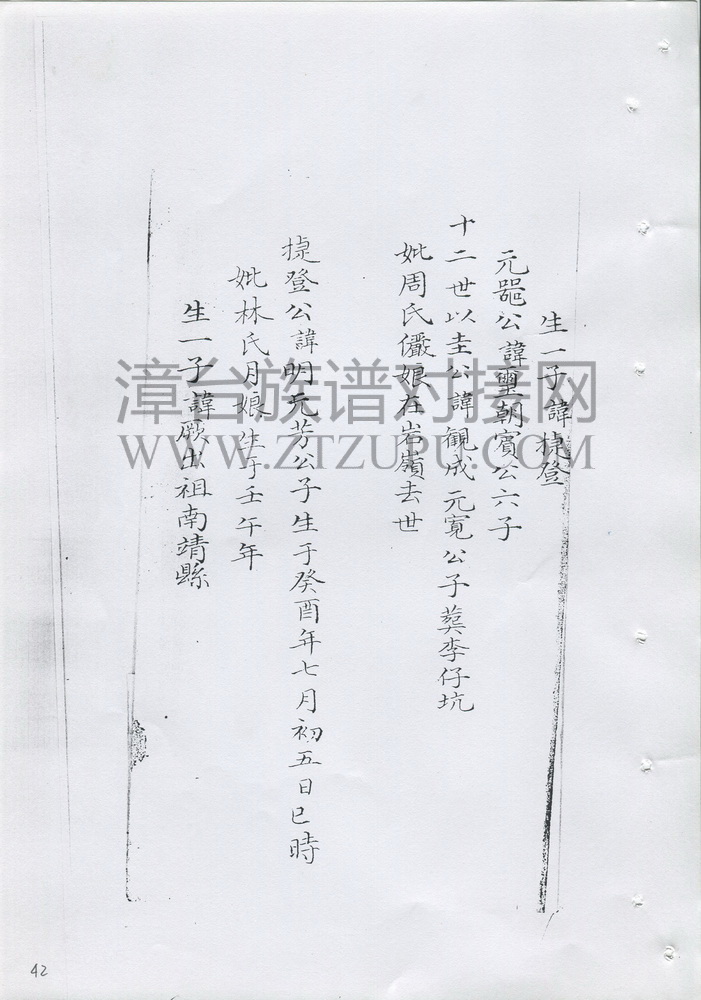 生一子諱捷登
元器公諱璽朝賓公六子
十二世以圭公諱観成元寛公子葬李仔坑
妣周氏儼娘在岩嶺去世
捷登公諱明元芳公子生于癸酉年七月初五日巳時
妣林氏月娘生于壬午年
生一子諱厥出祖南靖縣
漳台族谱对接网
WWW.ZTZUPU.COM
42